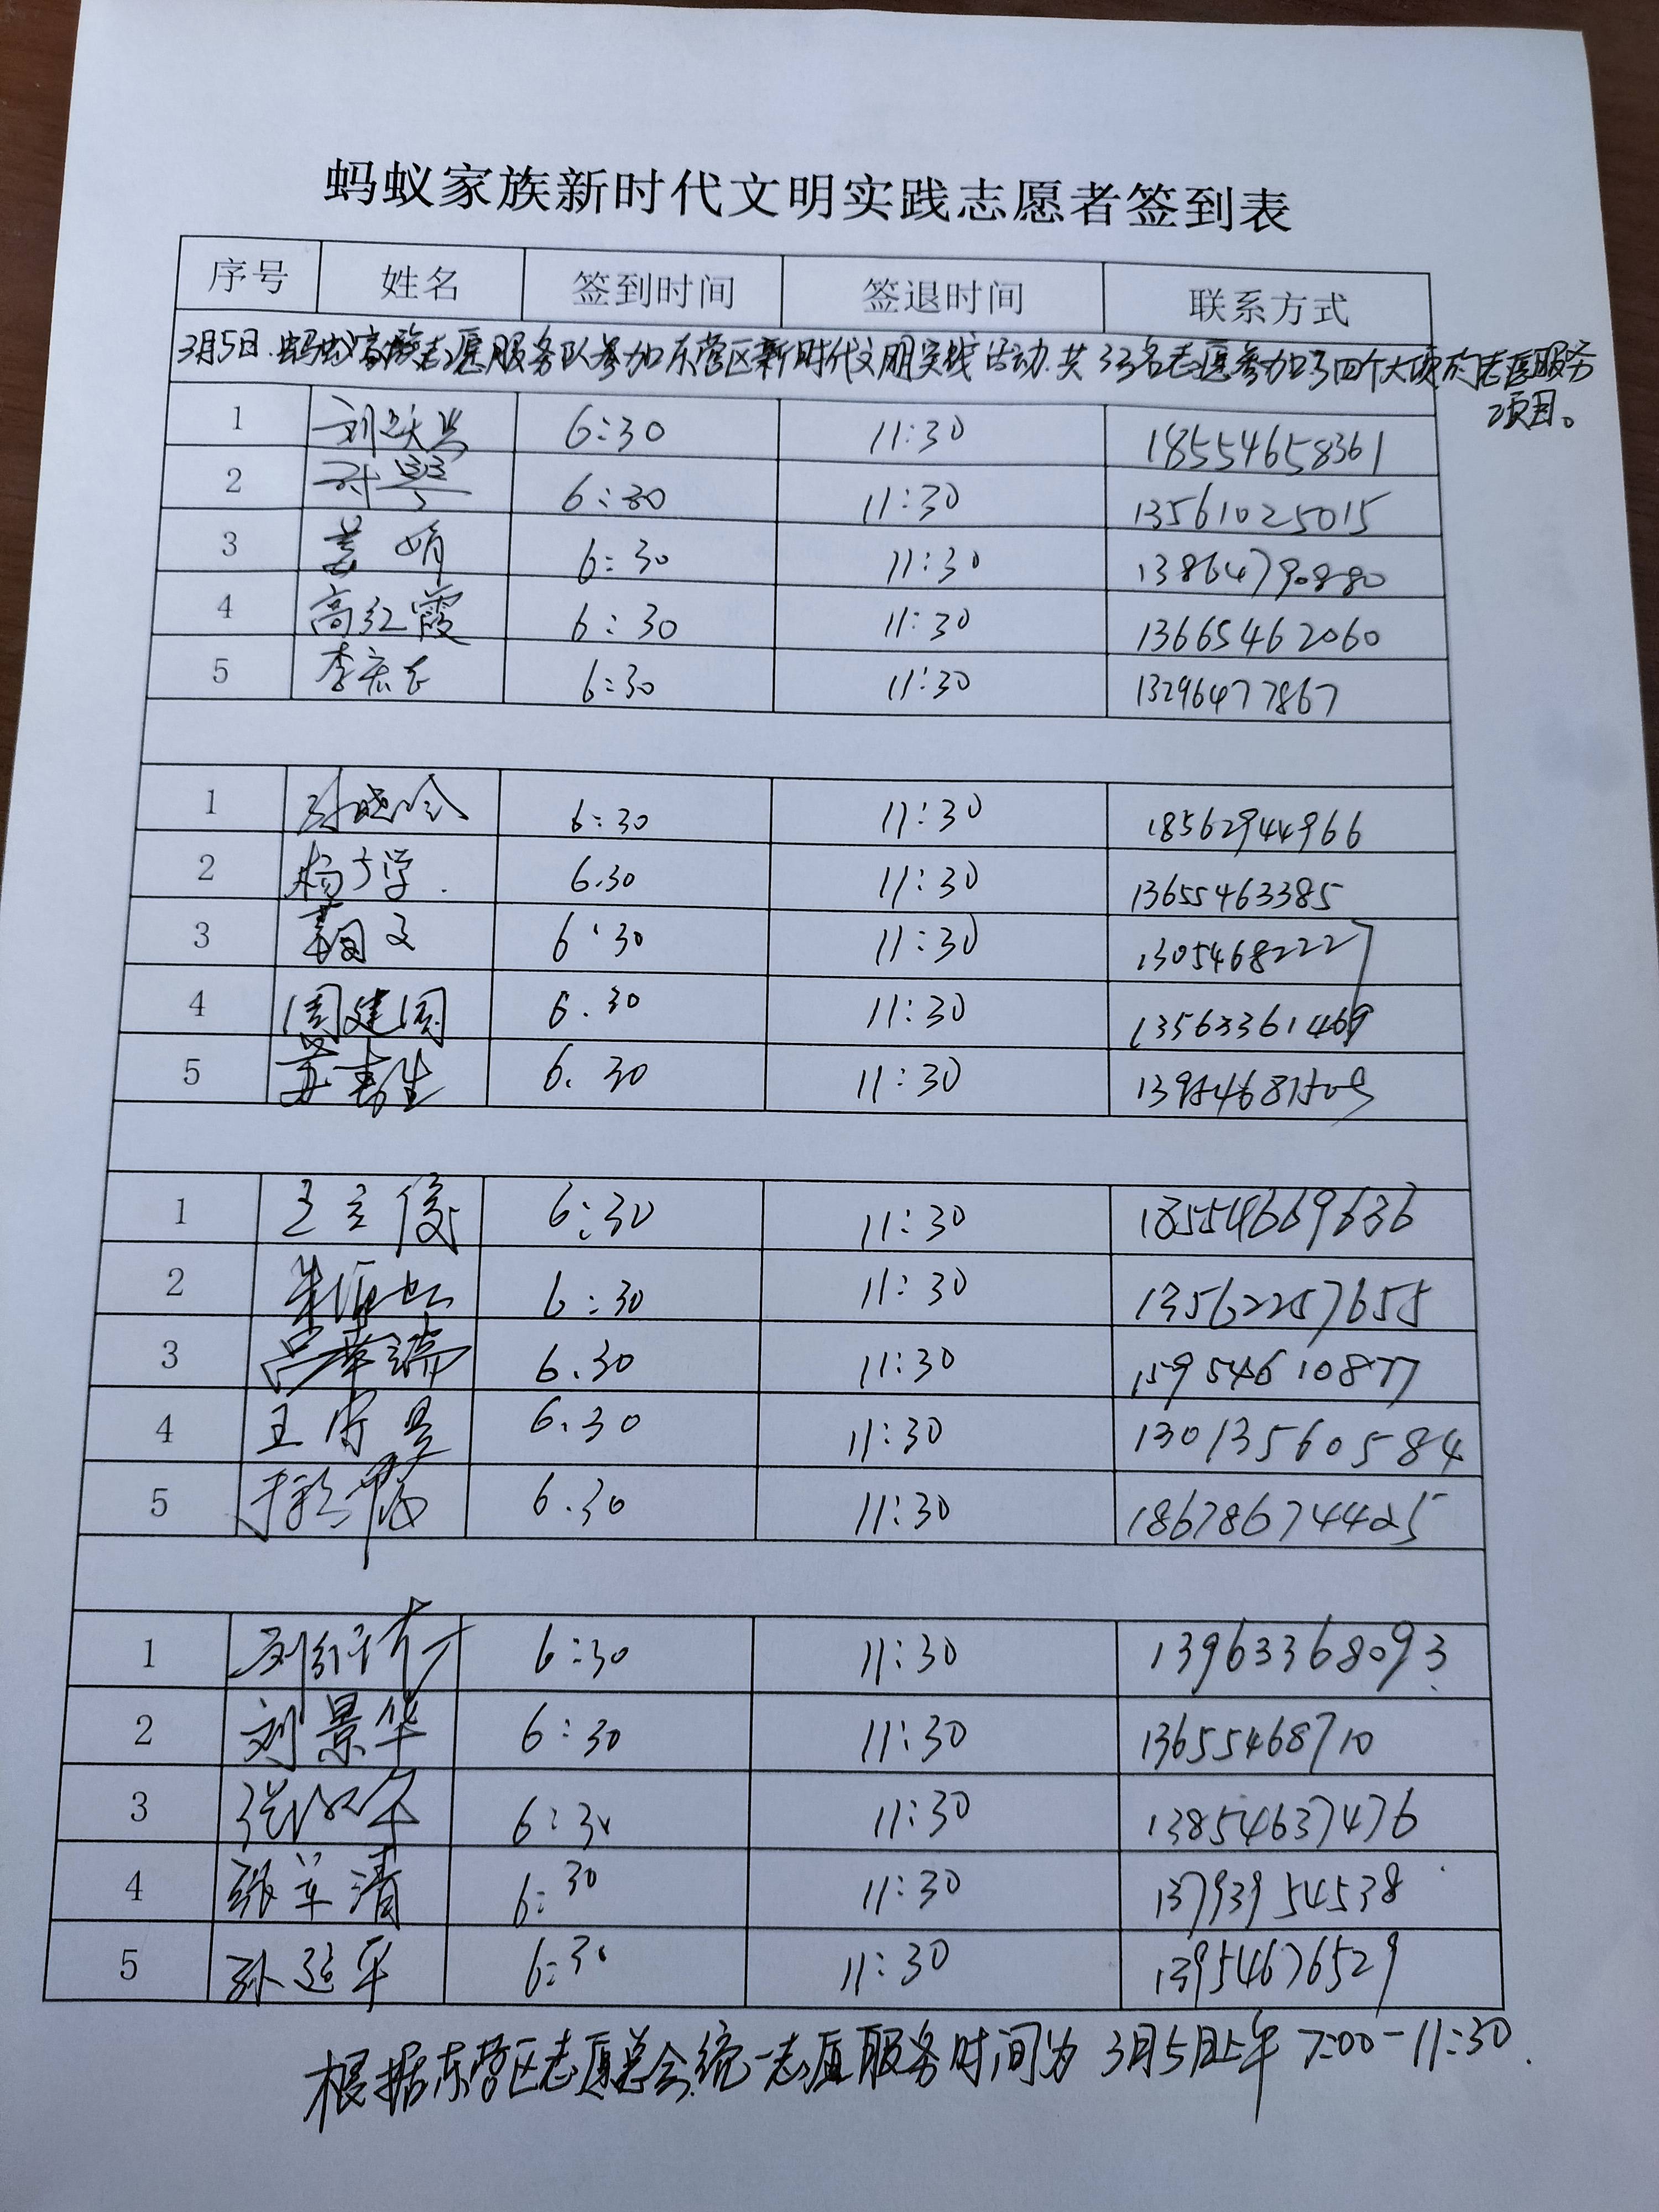 蚂蚁家族新时代文明实践志愿者签到表
序号 姓名 签到时间 签退时间 联系方式
3月5日.蚂蚁家族志愿服务队参加东营区新时代文明实践活动.共33名志愿参加了四个大项的志愿服务
项目。
1 6:30 11:30 18554658361
2 6:30 11:30 13561025015
3 姜娟 6:30 11:30 13864790880
4 高红霞 6:30 11:30 13665462060
5 6:30 11:30 13296477867
1 孙晓玲 6:30 11:30 18562944966
2 杨方学. 6.30 11:30 13655463385
3 6:30 11:30 13054682227
4 周建国 6.30 11:30 13563361469
5 苏寿生 6.30 11:30
1 王立俊 6:30 11:30 18554669636
2 6:30 11:30 13562257655
3 吕华瑞 6.30 11:30 15954610877
4 6.30 11:30 13013560584
5 6.30 11:30 18678674425
1 6:30 11:30 13963368093
2 刘景华 6:30 11:30 13655468710
3 6:30 11:30 13854637476
4 张兰清 6:30 11:30 13793954538
5 6:30 11:30 13954676529
根据东营区志愿总会统一志愿服务时间为 3月5日上午 7:00-11:30.